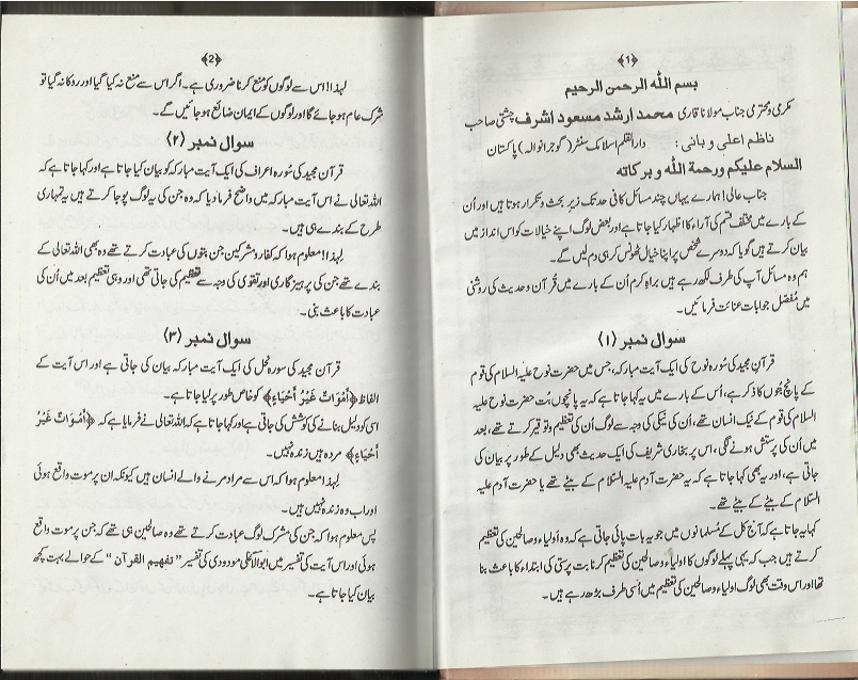 ﴿1﴾
بسم اللہ الرحمن الرحیم
مکرمی و محترمی جناب مولانا قاری محمد ارشد مسعود اشرف چشتی صاحب
ناظم اعلی و بانی: دارالقلم اسلامک سنٹر (گوجرانوالہ) پاکستان
السلام علیکم ورحمة اللہ وبرکاتہ
جناب عالی! ہمارے یہاں چند مسائل کافی حد تک زیرِ بحث و تکرار ہوتے ہیں اور اُن
کے بارے میں مختلف قسم کی آراء کا اظہار کیا جاتا ہے اور بعض لوگ اپنے خیالات کو اس انداز میں
بیان کرتے ہیں گویا کہ دوسرے شخص پر اپنا خیال ٹھونس کر ہی دم لیں گے۔
ہم وہ مسائل آپ کی طرف لکھ رہے ہیں براہِ کرم اُن کے بارے میں قُرآن و حدیث کی روشنی
میں مُفصل جوابات عنائت فرمائیں۔
سوال نمبر (۱)
قرآنِ مجید کی سُورہ نوح کی ایک آیت مبارکہ، جس میں حضرت نوح علیہ السلام کی قوم
کے پانچ بُتوں کا ذکر ہے، اُس کے بارے میں یہ کہا جاتا ہے کہ یہ پانچوں بُت حضرت نوح علیہ
السلام کی قوم کے نیک انسان تھے، اُن کی نیکی کی وجہ سے لوگ اُن کی تعظیم و توقیر کرتے تھے، بعد
میں اُن کی پرستش ہونے لگی، اس پر بخاری شریف کی ایک حدیث بھی دلیل کے طور پر بیان کی
جاتی ہے، اور یہ بھی کہا جاتا ہے کہ یہ حضرت آدم علیہ السّلام کے بیٹے تھے یا حضرت آدم علیہ
السّلام کے بیٹے کے بیٹے تھے۔
کہا یہ جاتا ہے کہ آج کل کے مُسلمانوں میں جو یہ بات پائی جاتی ہے کہ وہ اَولیاء و صالحین کی تعظیم
کرتے ہیں جب کہ یہی پہلے لوگوں کا اولیاء و صالحین کی تعظیم کرنا بت پرستی کی ابتداء کا باعث بنا
تھا اور اس وقت بھی لوگ اولیاء و صالحین کی تعظیم میں اُسی طرف بڑھ رہے ہیں۔
﴿2﴾
لہذا! اس سے لوگوں کو منع کرنا ضروری ہے۔ اگر اس سے منع نہ کیا گیا اور روکا نہ گیا تو
شرک عام ہو جائے گا اور لوگوں کے ایمان ضائع ہو جائیں گے۔
سوال نمبر (۲)
قرآن مجید کی سُورہ اعراف کی ایک آیت مبارکہ کو بیان کیا جاتا ہے اور کہا جاتا ہے کہ
اللہ تعالی نے اس آیت مبارکہ میں واضح فرما دیا کہ وہ جن کی یہ لوگ پوجا کرتے ہیں یہ تمہاری
طرح کے بندے ہی ہیں۔
لہذا! معلوم ہوا کہ کفار و مشرکین جن بتوں کی عبادت کرتے تھے وہ بھی اللہ تعالی کے
بندے تھے جن کی پرہیز گاری اور تقوی کی وجہ سے تعظیم کی جاتی تھی اور وہی تعظیم بعد میں اُن کی
عبادت کا باعث بنی۔
سوال نمبر (۳)
قرآن مجید کی سُورہ نحل کی ایک آیت مبارکہ بیان کی جاتی ہے اور اس آیت کے
الفاظ ﴿أَمْوَاتٌ غَيْرُ أَحْيَاءٍ﴾ کو خاص طور پر لیا جاتا ہے۔
اسی کو دلیل بنانے کی کوشش کی جاتی ہے اور کہا جاتا ہے کہ اللہ تعالی نے فرمایا ہے کہ ﴿أَمْوَاتٌ غَيْرُ
أَحْيَاءٍ﴾ مردہ ہیں زندہ نہیں۔
لہذا معلوم ہوا کہ اس سے مراد مرنے والے انسان ہیں کیونکہ ان پر موت واقع ہوئی
اور اب وہ زندہ نہیں ہیں۔
پس معلوم ہوا کہ جن کی مشرک لوگ عبادت کرتے تھے وہ صالحین ہی تھے کہ جن پر موت واقع
ہوئی اور اس آیت کی تفسیر میں ابوالاعلی مودودی کی تفسیر "تفہیم القرآن" کے حوالے بہت کچھ
بیان کیا جاتا ہے۔